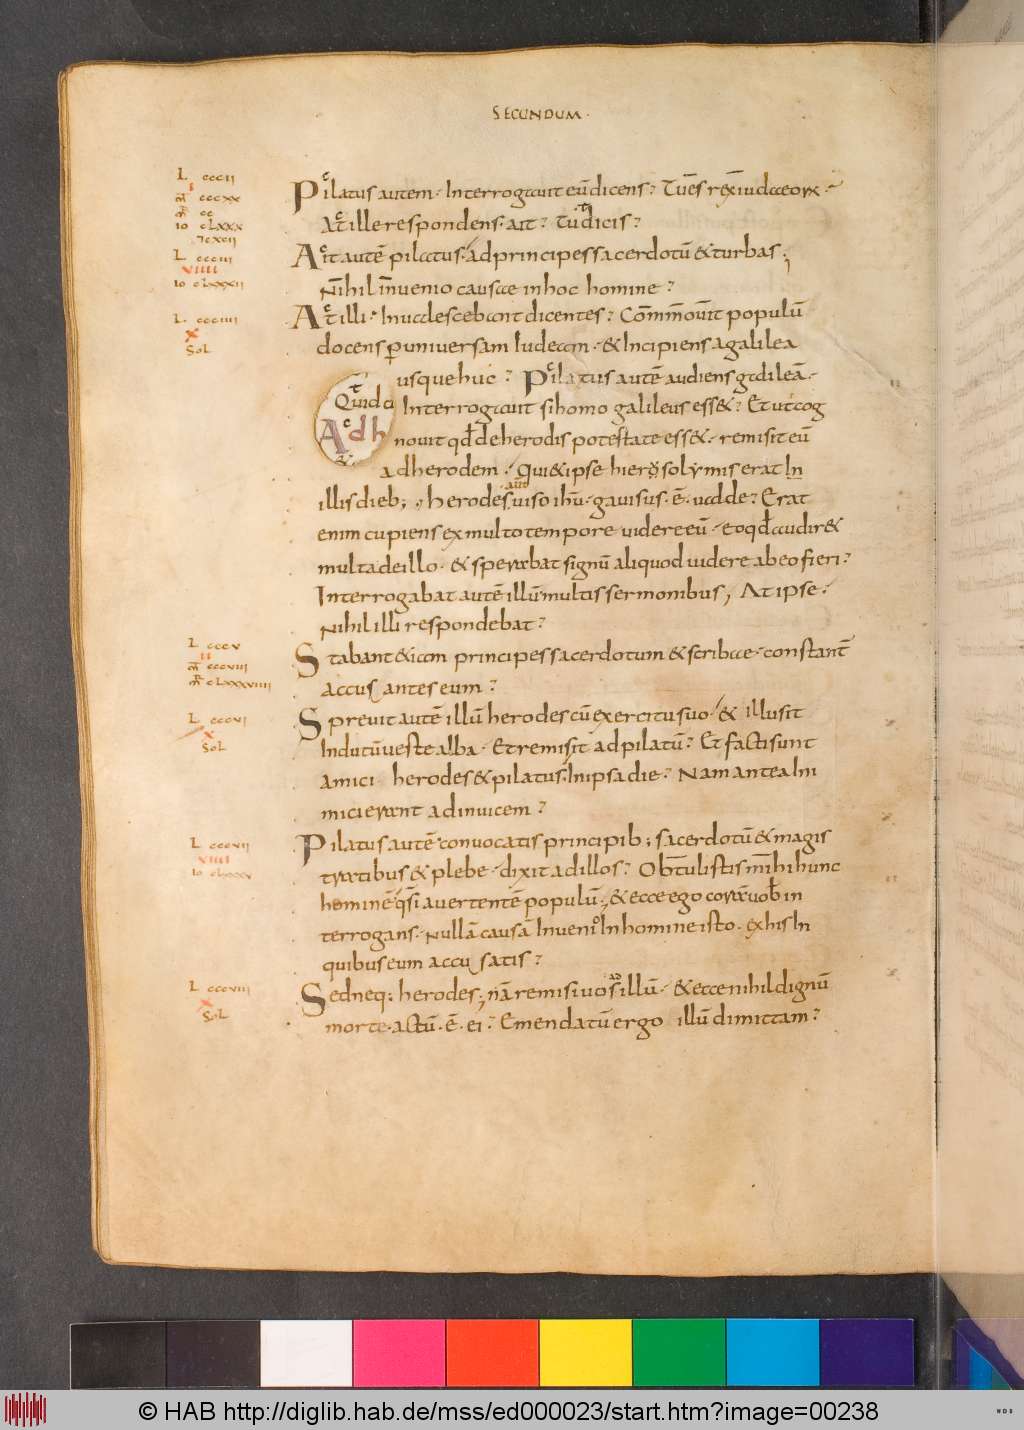 SECUNDUM·
L cccii
i
m̄ cccxx
m̄ cc
io clxxx
Pilatus autem· Interrogauit eū dicens? Tu es rex iudaeorum·
At ille respondens· ait? tu dicis?
L ccciii
viiii
io clxxxii
Ait autē pilatus· ad principes sacerdotū & turbas;
Nihil inuenio causae in hoc homine?
L ccciiii
x
SoL
At illi· Inualescebant dicentes? Cōmouit populū
docens p uniuersam Iudeam· & Incipiens a galilea
usque huc? Pilatus autē audiens galileā·
Interrogauit si homo galileus ess&? Et ut cog
nouit qđ de herodis potestate ess&· remisit eū
ad herodem· Qui & ipse hierosolymis erat In
Adh
illis dieb; herodes aut uiso ihū· gauisus· ē· ualde? Erat
enim cupiens ex multo tempore uidere eū· eo qđ audir&
multa de illo· & sperabat signū aliquod uidere ab eo fieri?
Interrogabat autē illū multis sermonibus, At ipse·
Nihil illi respondebat?
L cccv
ii
m̄ cccviii
m̄ clxxxviiii
Stabant &iam principes sacerdotum & scribae· constant̄
accusantes eum?
L cccvi
x
SoL
Spreuit autē illū herodes cū exercitu suo· & illusit
Indutū ueste alba· Et remisit ad pilatū? Et facti sunt
amici· herodes & pilatus· In ipsa die? Nam antea Ini
mici erant ad inuicem?
L cccvii
viiii
io clxxxv
Pilatus autē conuocatis principib; sacerdotū & magis
tratibus & plebe· dixit ad illos? Obtulistis mihi hunc
hominē qsi auertentē populū; & ecce ego corā uob in
terrogans· Nullā causā Inueni In homine isto· ex his In
quibus eum accusatis?
L cccviii
x
SoL
Sed neq; herodes; nā remisi uos ad illū· & ecce nihil dignū
morte· actū· ē· ei? Emendatū ergo illū dimittam?
© HAB http://diglib.hab.de/mss/ed000023/start.htm?image=00238
WDB